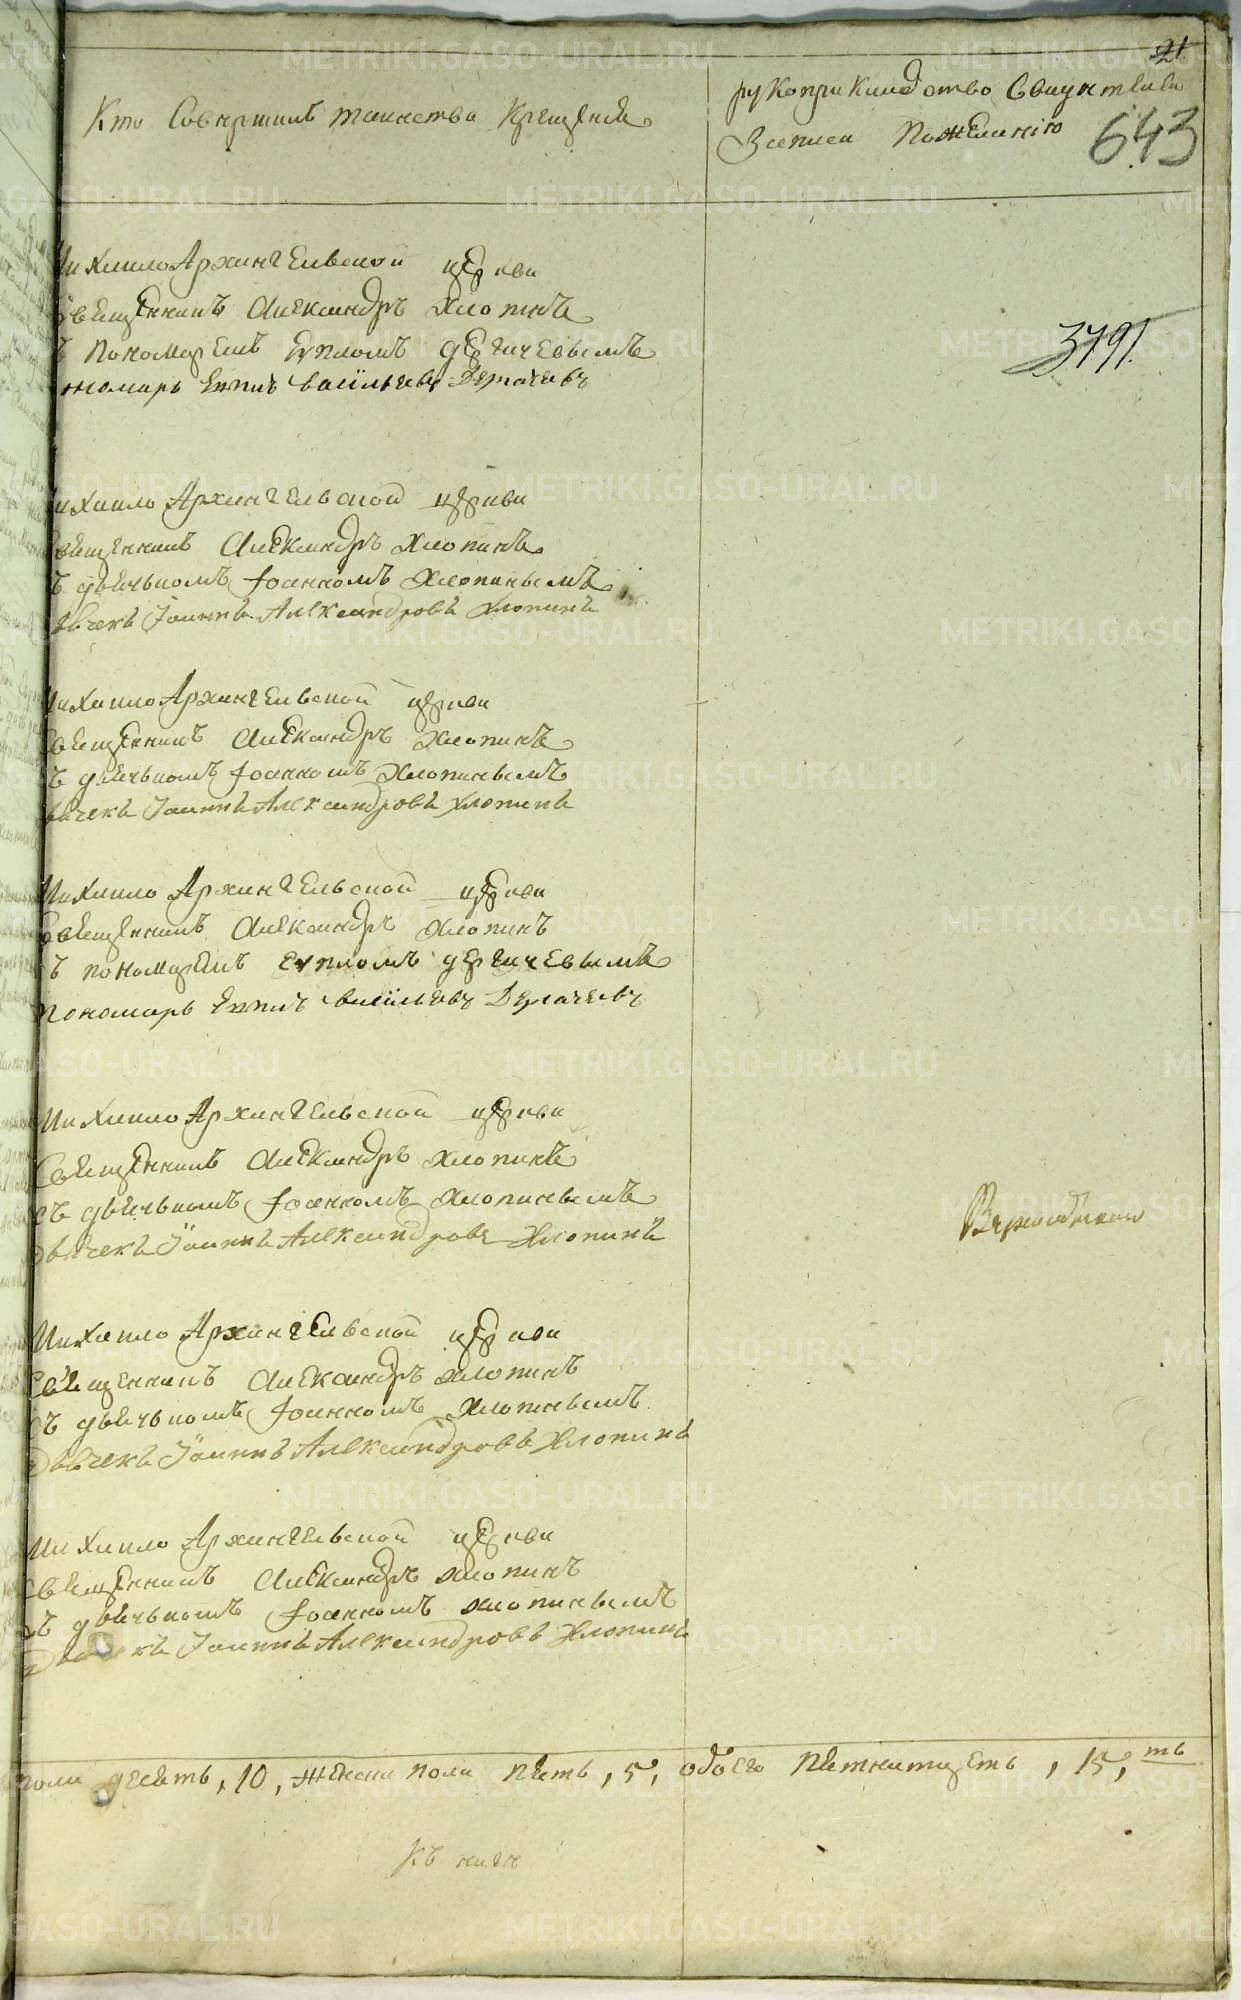 21
Кто Совершилъ таинство Крещенiя
рукоприкладство Свидѣтелей
Записи по желанiю
643
Михаило Архангельской церкви
Священникъ Александръ Хлопинъ
съ пономаремъ Еупломъ Дергачевымъ
пономарь Еуплъ Васильевъ Дергачевъ
3791.
Михаило Архангельской церкви
Священникъ Александръ Хлопинъ
съ дьячькомъ Iоанномъ Хлопинымъ
Дьячекъ Iоаннъ Александровъ Хлопинъ
Михаило Архангельской церкви
Священникъ Александръ Хлопинъ
съ дьячькомъ Iоанномъ Хлопинымъ
Дьячекъ Iоаннъ Александровъ Хлопинъ
Михаило Архангельской церкви
Священникъ Александръ Хлопинъ
съ пономаремъ Еупломъ Дергачевымъ
Пономарь Еуплъ Васильевъ Дергачевъ
Михаило Архангельской церкви
Священникъ Александръ Хлопинъ
съ дьячькомъ Iоанномъ Хлопинымъ
Дьячекъ Iоаннъ Александровъ Хлопинъ
Михаило Архангельской церкви
Священникъ Александръ Хлопинъ
съ дьячькомъ Iоанномъ Хлопинымъ
Дьячекъ Iоаннъ Александровъ Хлопинъ
Михаило Архангельской церкви
Священникъ Александръ Хлопинъ
съ дьячькомъ Iоанномъ Хлопинымъ
Дьячекъ Iоаннъ Александровъ Хлопинъ
пола десять, 10, женска пола пять, 5, обоего пятнатцеть, 15, ть
къ
METRIKI.GASO-URAL.RU